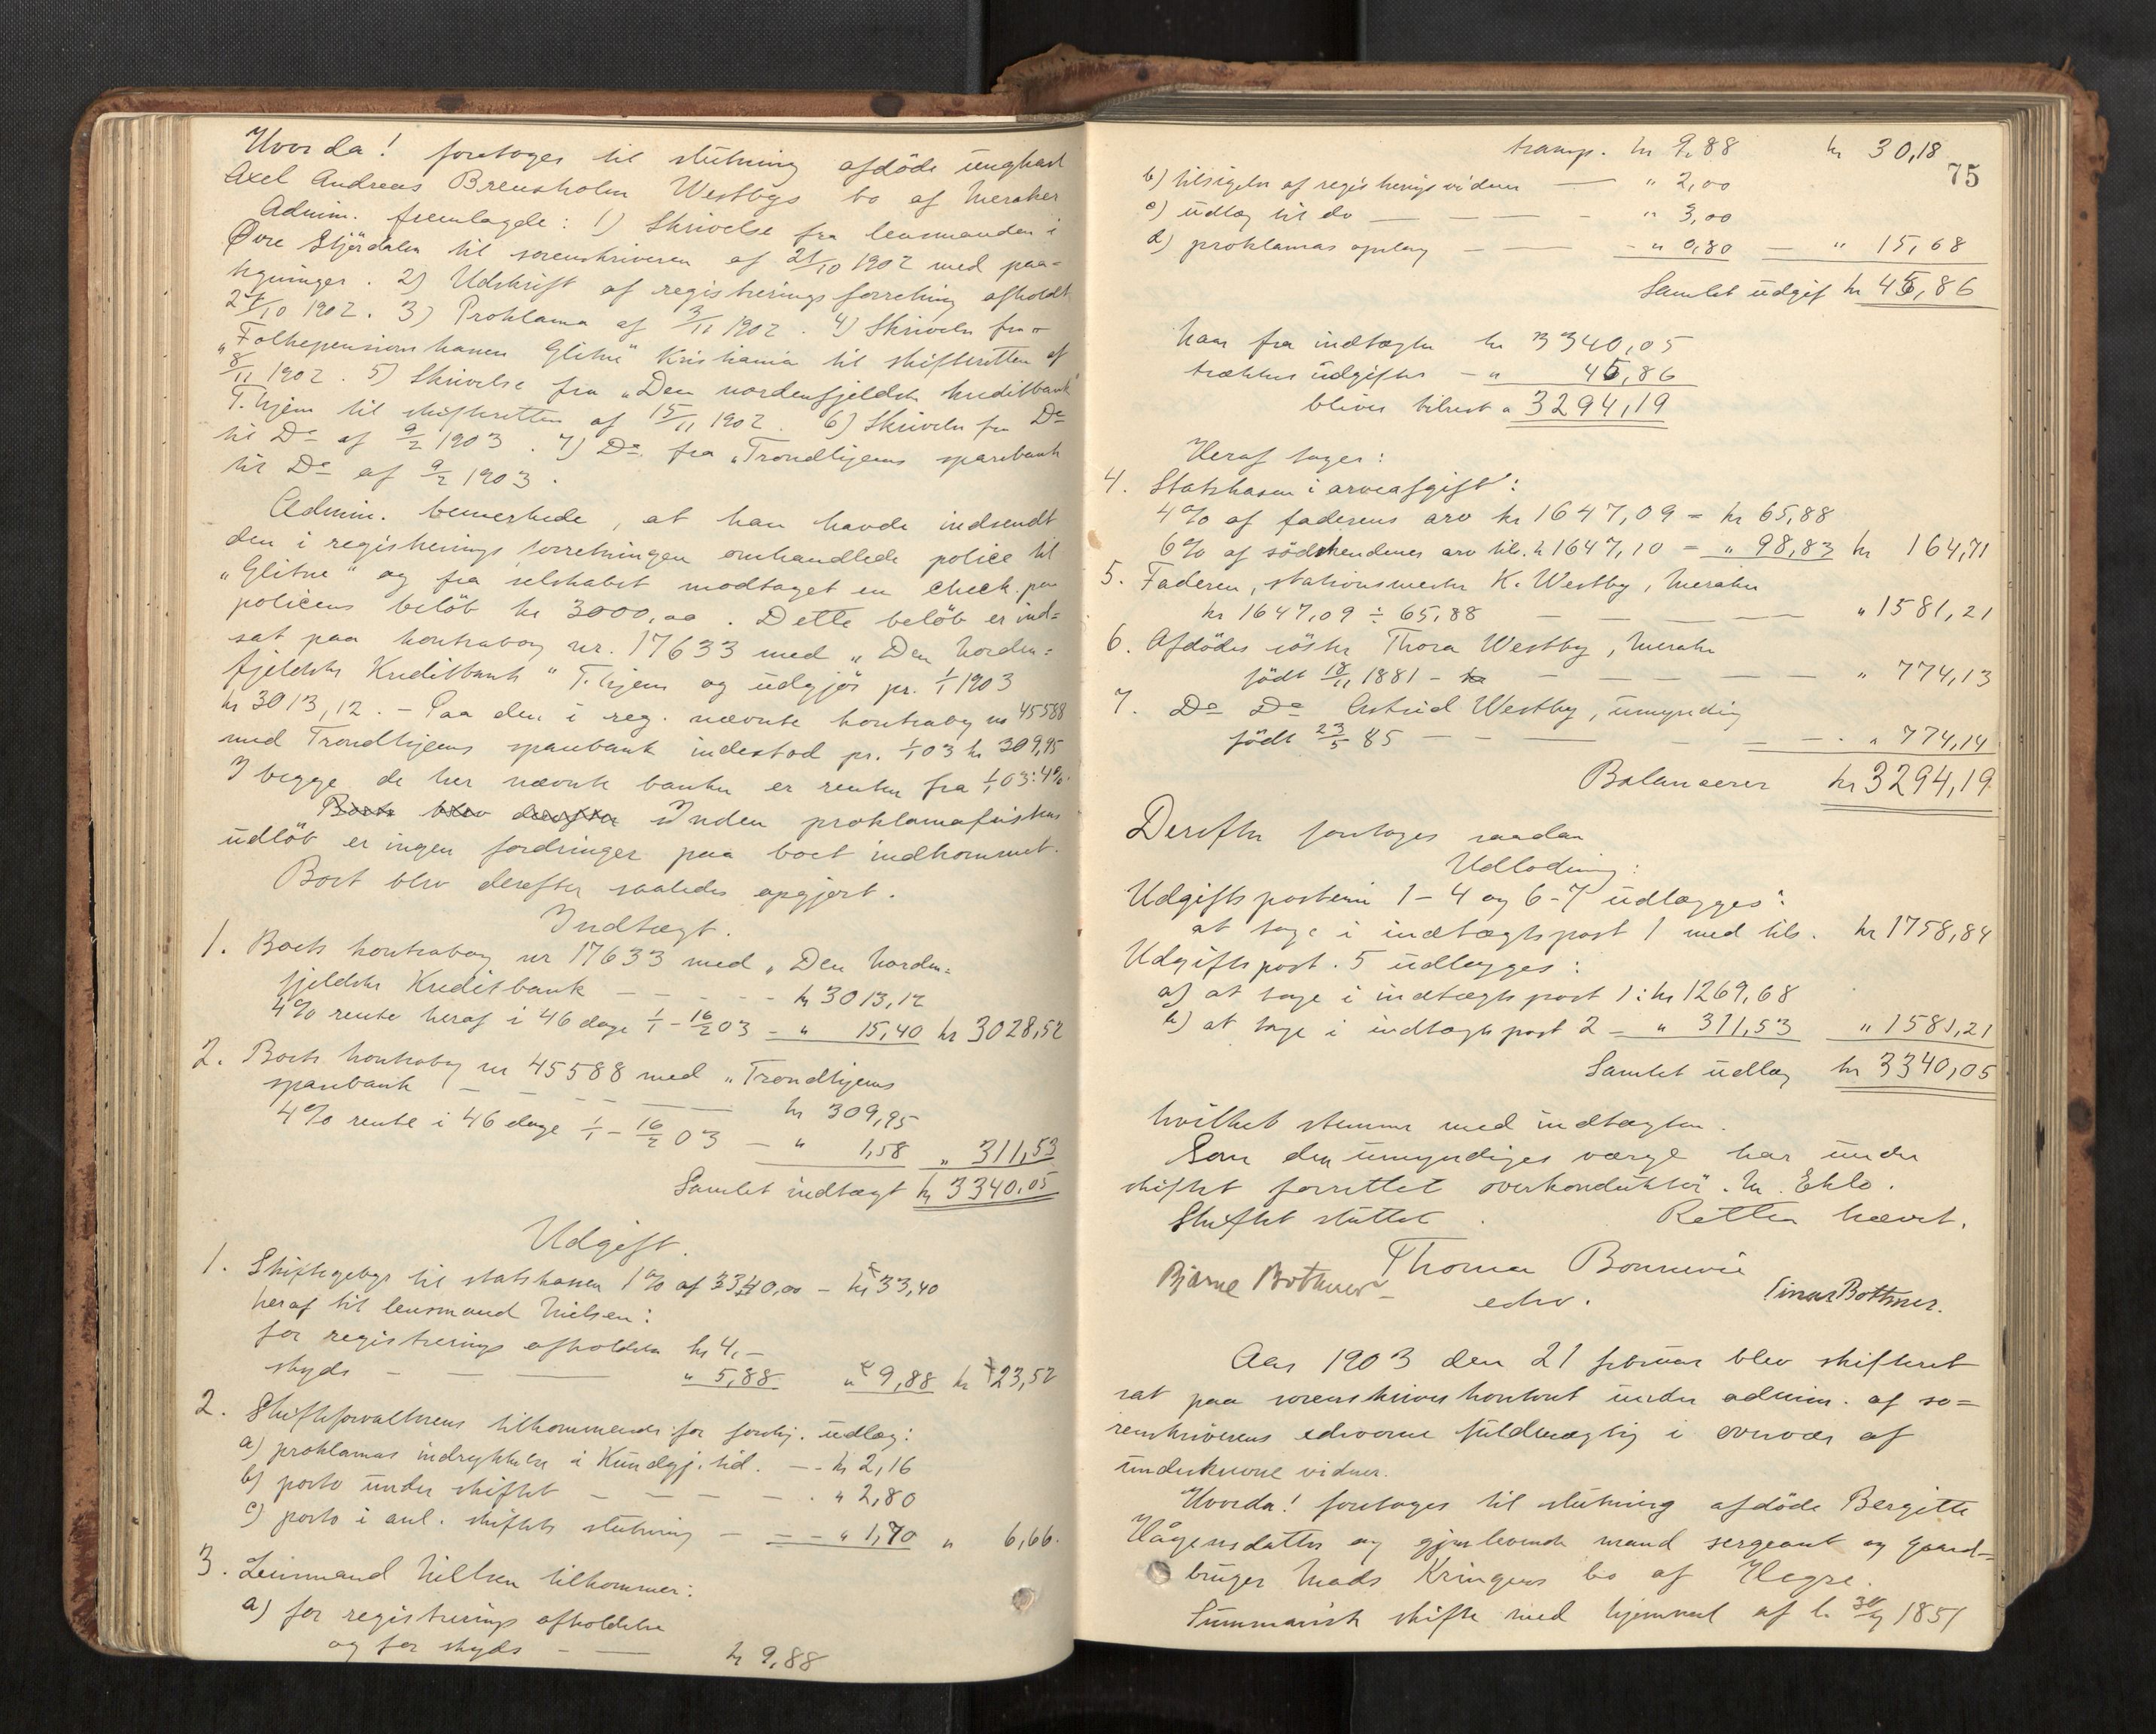 Hvorda! foretoges til slutning afdöde ungkarl
Axel Andreas Brensholm Westbys bo af Meraker
Admin. fremlagde: 1) Skrivelse fra lensmanden i
Øvre Stjördalen til sorenskriveren af 21/10 1902 med paa-
tegninger. 2) Udskrift af registreringsforretning afholdt
27/10 1902. 3) Proklama af 3/11 1902. 4) Skrivelse fra
"Folkepensionskassen Glitne" Kristiania til skifteretten af
8/11 1902. 5) Skrivelse fra "Den nordenfjeldske kreditbank"
T.hjem til skifteretten af 15/11 1902. 6) Skrivelse fra Do
til Do af 9/2 1903. 7) Do fra "Trondhjems sparebank
til Do af 9/2 1903.
Admin. bemerkede, at han havde indsendt
den i registreringsforretningen omhandlede police til
"Glitne" og fra selskabet modtaget en check paa
policens belöb kr 3000,00. Dette belöb er ind=
sat paa kontrabog nr. 17633 med "Den Norden=
fjeldske Kreditbank" T.hjem og udgjör pr. 1/1 1903
kr 3013,12. - Paa den i reg. nævnte kontrabog nr 45588
med Trondhjems sparebank indestod pr. 1/1 03 kr 309,95
I begge de her nævnte banker er renten fra 1/1 03: 4%.
Boets blev derefter Inden proklamafristens
udlöb er ingen fordringer paa boet indkommet.
Boet blev derefter saaledes opgjort.
Indtægt.
1. Boets kontrabog nr 17633 med "Den Norden=
fjeldske Kreditbank - - - - - kr 3013,12
4% rente heraf i 46 dage 1/1 - 16/2 03 - " 15,40 kr 3028,52
2. Boets kontrabog nr 45588 med "Trondhjems
sparebank - - - - - kr 309,95
4% rente i 46 dage 1/1 - 16/2 03 - " 1,58 " 311,53
Samlet indtægt kr 3340,05
Udgift.
1. Skiftegebyr til statskassen 1% af 3340,00 - kr 33,40
heraf til lensmand Nielsen:
for registrerings afholdelse kr 4,-
skyds - - - " 5,88 " 9,88 kr 23,52
2. Skifteforvalterens tilkommende for forskj. udlæg:
a) proklamas indrykkelse i Kundgj. tid. - - kr 2,16
b) porto under skiftet - - - - - " 2,80
c) porto i anl. skiftets slutning - = - " 1,70 " 6,66.
3. Lensmand Nielsen tilkommer:
a) for registrerings afholdelse
og for skyds - - kr 9,88
75
transp. kr 9,88 kr 30,18
b) tilsigelse af registreringsvidner - " 2,00
c) udlæg til do - - - - " 3,00
d) proklamas opslag - - - " 0,80 - " 15,68
Samlet udgift kr 45,86
Naar fra indtægten kr 3340,05
trækkes udgiften - " 45,86
bliver tilrest " 3294,19
Heraf tages:
4. Statskassen i arveafgift:
4% af faderens arv kr 1647,09 = kr 65,88
6% af södskendenes arv tils. kr 1647,10 = " 98,83 kr 164,71
5. Faderen, stationsmester K. Westby, Meraker
kr 1647,09 ÷ 65,88 - - - - " 1581,21
6. Afdödes söster Thora Westby, Meraker
födt 18/11 1881 - - - - - - " 774,13
7. Do Do Astrid Westby, umyndig
födt 23/5 85 - - - - - - " 774,14
Balancerer kr 3294,19
Derefter foretoges saadan
Udlodning:
Udgiftsposterne 1-4 og 6-7 udlægges:
at tage i indtægtspost 1 med tils. kr 1758,84
Udgiftspost. 5 udlægges:
a) at tage i indtægtspost 1: kr 1269,68
b) at tage i indtægtspost 2 - " 311,53 " 1581,21
Samlet udlæg kr 3340,05
hvilket stemmer med indtægten.
Som den umyndiges værge har under
skiftet forrettet overkonduktör M. Eklo.
Skiftet sluttet. Retten hævet.
Thomas Bonnevie
edsv.
Bjarne Bothner Einar Bothner.
Aar 1903 den 21 februar blev skifteret
sat paa sorenskriverkontoret under admin. af so=
renskriverens edsvorne fuldmægtig i overvær af
underskrevne vidner.
Hvorda! foretoges til slutning afdöde Bergitte
Hågensdatter og gjenlevende mand sergeant og gaard=
bruger Mads Kringens bo af Hegre.
Summarisk skifte med hjemmel af l. 30/7 1851